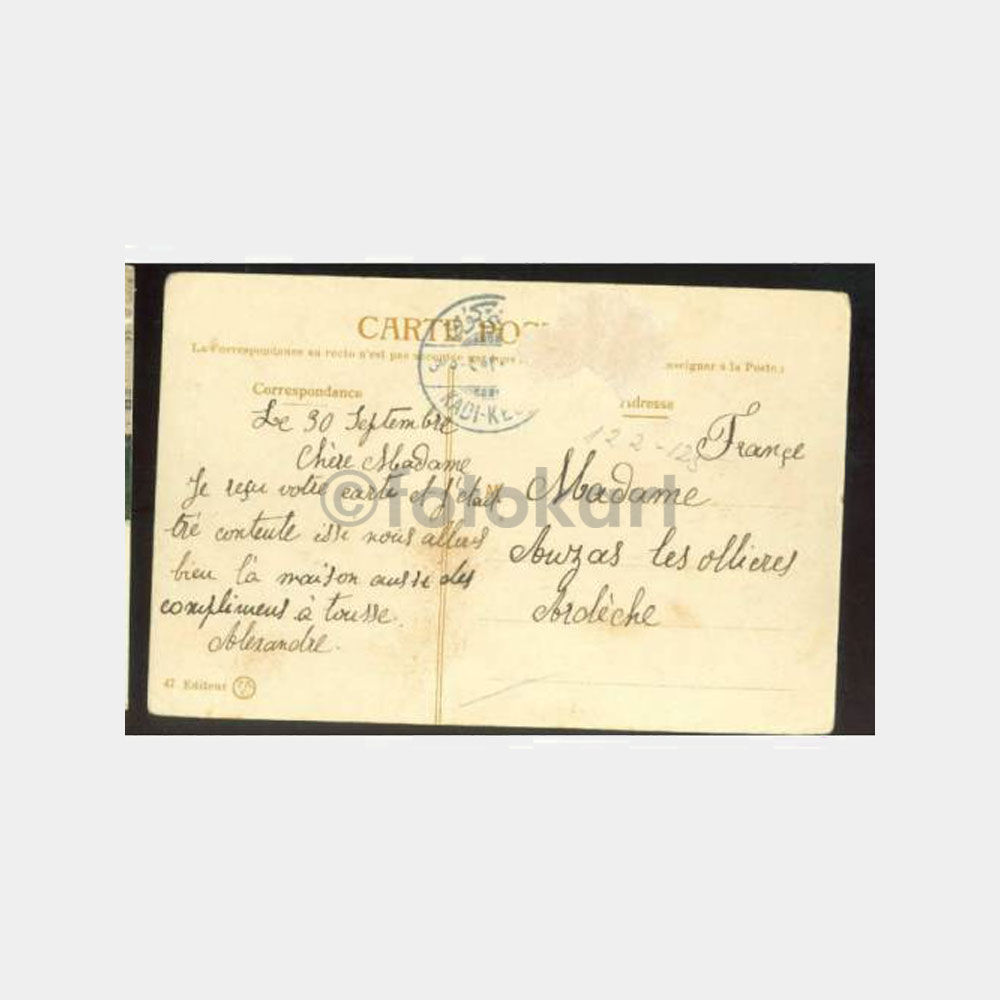 CARTE POST
La Correspondance au recto n'est pas
nseigner à la Poste.)
KADI-KEU
Correspondance
Adresse
Le 30 Septembre
Chère Madame
Je reçu votre carte et j'était
tré contente issi nous allons
bien la maison aussi des
compliment à tousse.
Alexandre.
47 Editeur
122-125
France
M
Madame
Auzas les ollieres
Ardèche
©fotokart